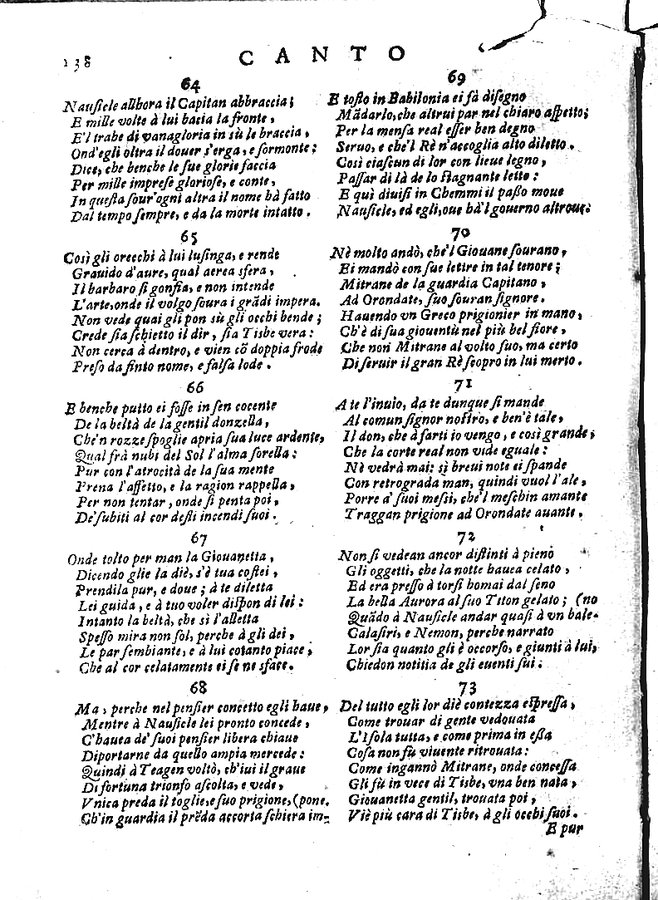 138
CANTO
64
Nausicle allhora il Capitan abbraccia;
E mille volte à lui bacia la fronte,
E'l trahe di vanagloria in sù le braccia,
Ond'egli oltra il douer s'erga, e sormonte:
Dice, che benche le sue glorie faccia
Per mille imprese gloriose, e conte,
In questa sour'ogni altra il nome hà fatto
Dal tempo sempre, e da la morte intatto.
65
Così gli orecchi à lui lusinga, e rende
Grauido d'aure, qual aerea sfera,
Il barbaro si gonfia, e non intende
L'arte, onde il volgo soura i grãdi impera.
Non vede quai gli pon sù gli occhi bende;
Crede sia schietto il dir, sia Tisbe vera:
Non cerca à dentro, e vien cõ doppia frode
Preso da finto nome, e falsa lode.
66
E benche putto ei fosse in sen cocente
De la beltà de la gentil donzella,
Che'n rozze spoglie apria sua luce ardente,
Qual frà nubi del Sol l'alma sorella:
Pur con l'atrocità de la sua mente
Prena l'affetto, e la ragion rappella,
Per non tentar, onde si penta poi,
De'subiti al cor desti incendi suoi.
67
Onde tolto per man la Giouanetta,
Dicendo glie la diè, s'è tua costei,
Prendila pur, e doue; à te diletta
Lei guida, e à tuo voler dispon di lei:
Intanto la beltà, che sì l'alletta
Spesso mira non sol, perche à gli dei,
Le par sembiante, e à lui cotanto piace,
Che al cor celatamente ei se ne sface.
68
Ma, perche nel pensier concetto egli haue,
Mentre à Nausicle lei pronto concede,
C'hauea de' suoi pensier libera chiaue
Diportarne da quello ampia mercede:
Quindi à Teagen voltò, ch'iui il graue
Di fortuna trionfo ascolta, e vede,
Vnica preda il toglie, e suo prigione, (pone.
Ch'in guardia il prẽda accorta schiera im-
69
E tosto in Babilonia ei fà disegno
Mãdarlo, che altrui par nel chiaro aspetto;
Per la mensa real esser ben degno
Seruo, e che'l Rè n'accoglia alto diletto.
Così ciascun di lor con lieue legno,
Passar di là de lo stagnante letto:
E quì diuisi in Chemmi il passo moue
Nausicle, ed egli, oue hà'l gouerno altroue.
70
Nè molto andò, che'l Giouane sourano,
Ei mandò con sue lettre in tal tenore;
Mitrane de la guardia Capitano,
Ad Orondate, suo souran signore.
Hauendo vn Greco prigionier in mano,
Ch'è di sua giouentù nel più bel fiore,
Che non Mitrane al volto suo, ma certo
Di seruir il gran Rè scopro in lui merto.
71
A te l'inuio, da te dunque si mande
Al comun signor nostro, e ben'è tale,
Il don, che à farti io vengo, e così grande;
Che la corte real non vide eguale:
Nè vedrà mai: sì breui note ei spande
Con retrograda man, quindi vuol l'ale,
Porre a' suoi messi, che'l meschin amante
Traggan prigione ad Orondate auante.
72
Non si vedean ancor distinti à pieno
Gli oggetti, che la notte hauea celato,
Ed era presso à torsi homai dal seno
La bella Aurora al suo Titon gelato; (no
Quãdo à Nausicle andar quasi à vn bale-
Calasiri, e Nemon, perche narrato
Lor sia quanto gli è occorso, e giunti à lui,
Chiedon notitia de gli euenti sui.
73
Del tutto egli lor diè contezza espressa,
Come trouar di gente vedouata
L'Isola tutta, e come prima in essa
Cosa non fù viuente ritrouata:
Come ingannò Mitrane, onde concessa
Gli fù in vece di Tisbe, vna ben nata,
Giouanetta gentil, trouata poi,
Viè più cara di Tisbe, à gli occhi suoi.
E pur